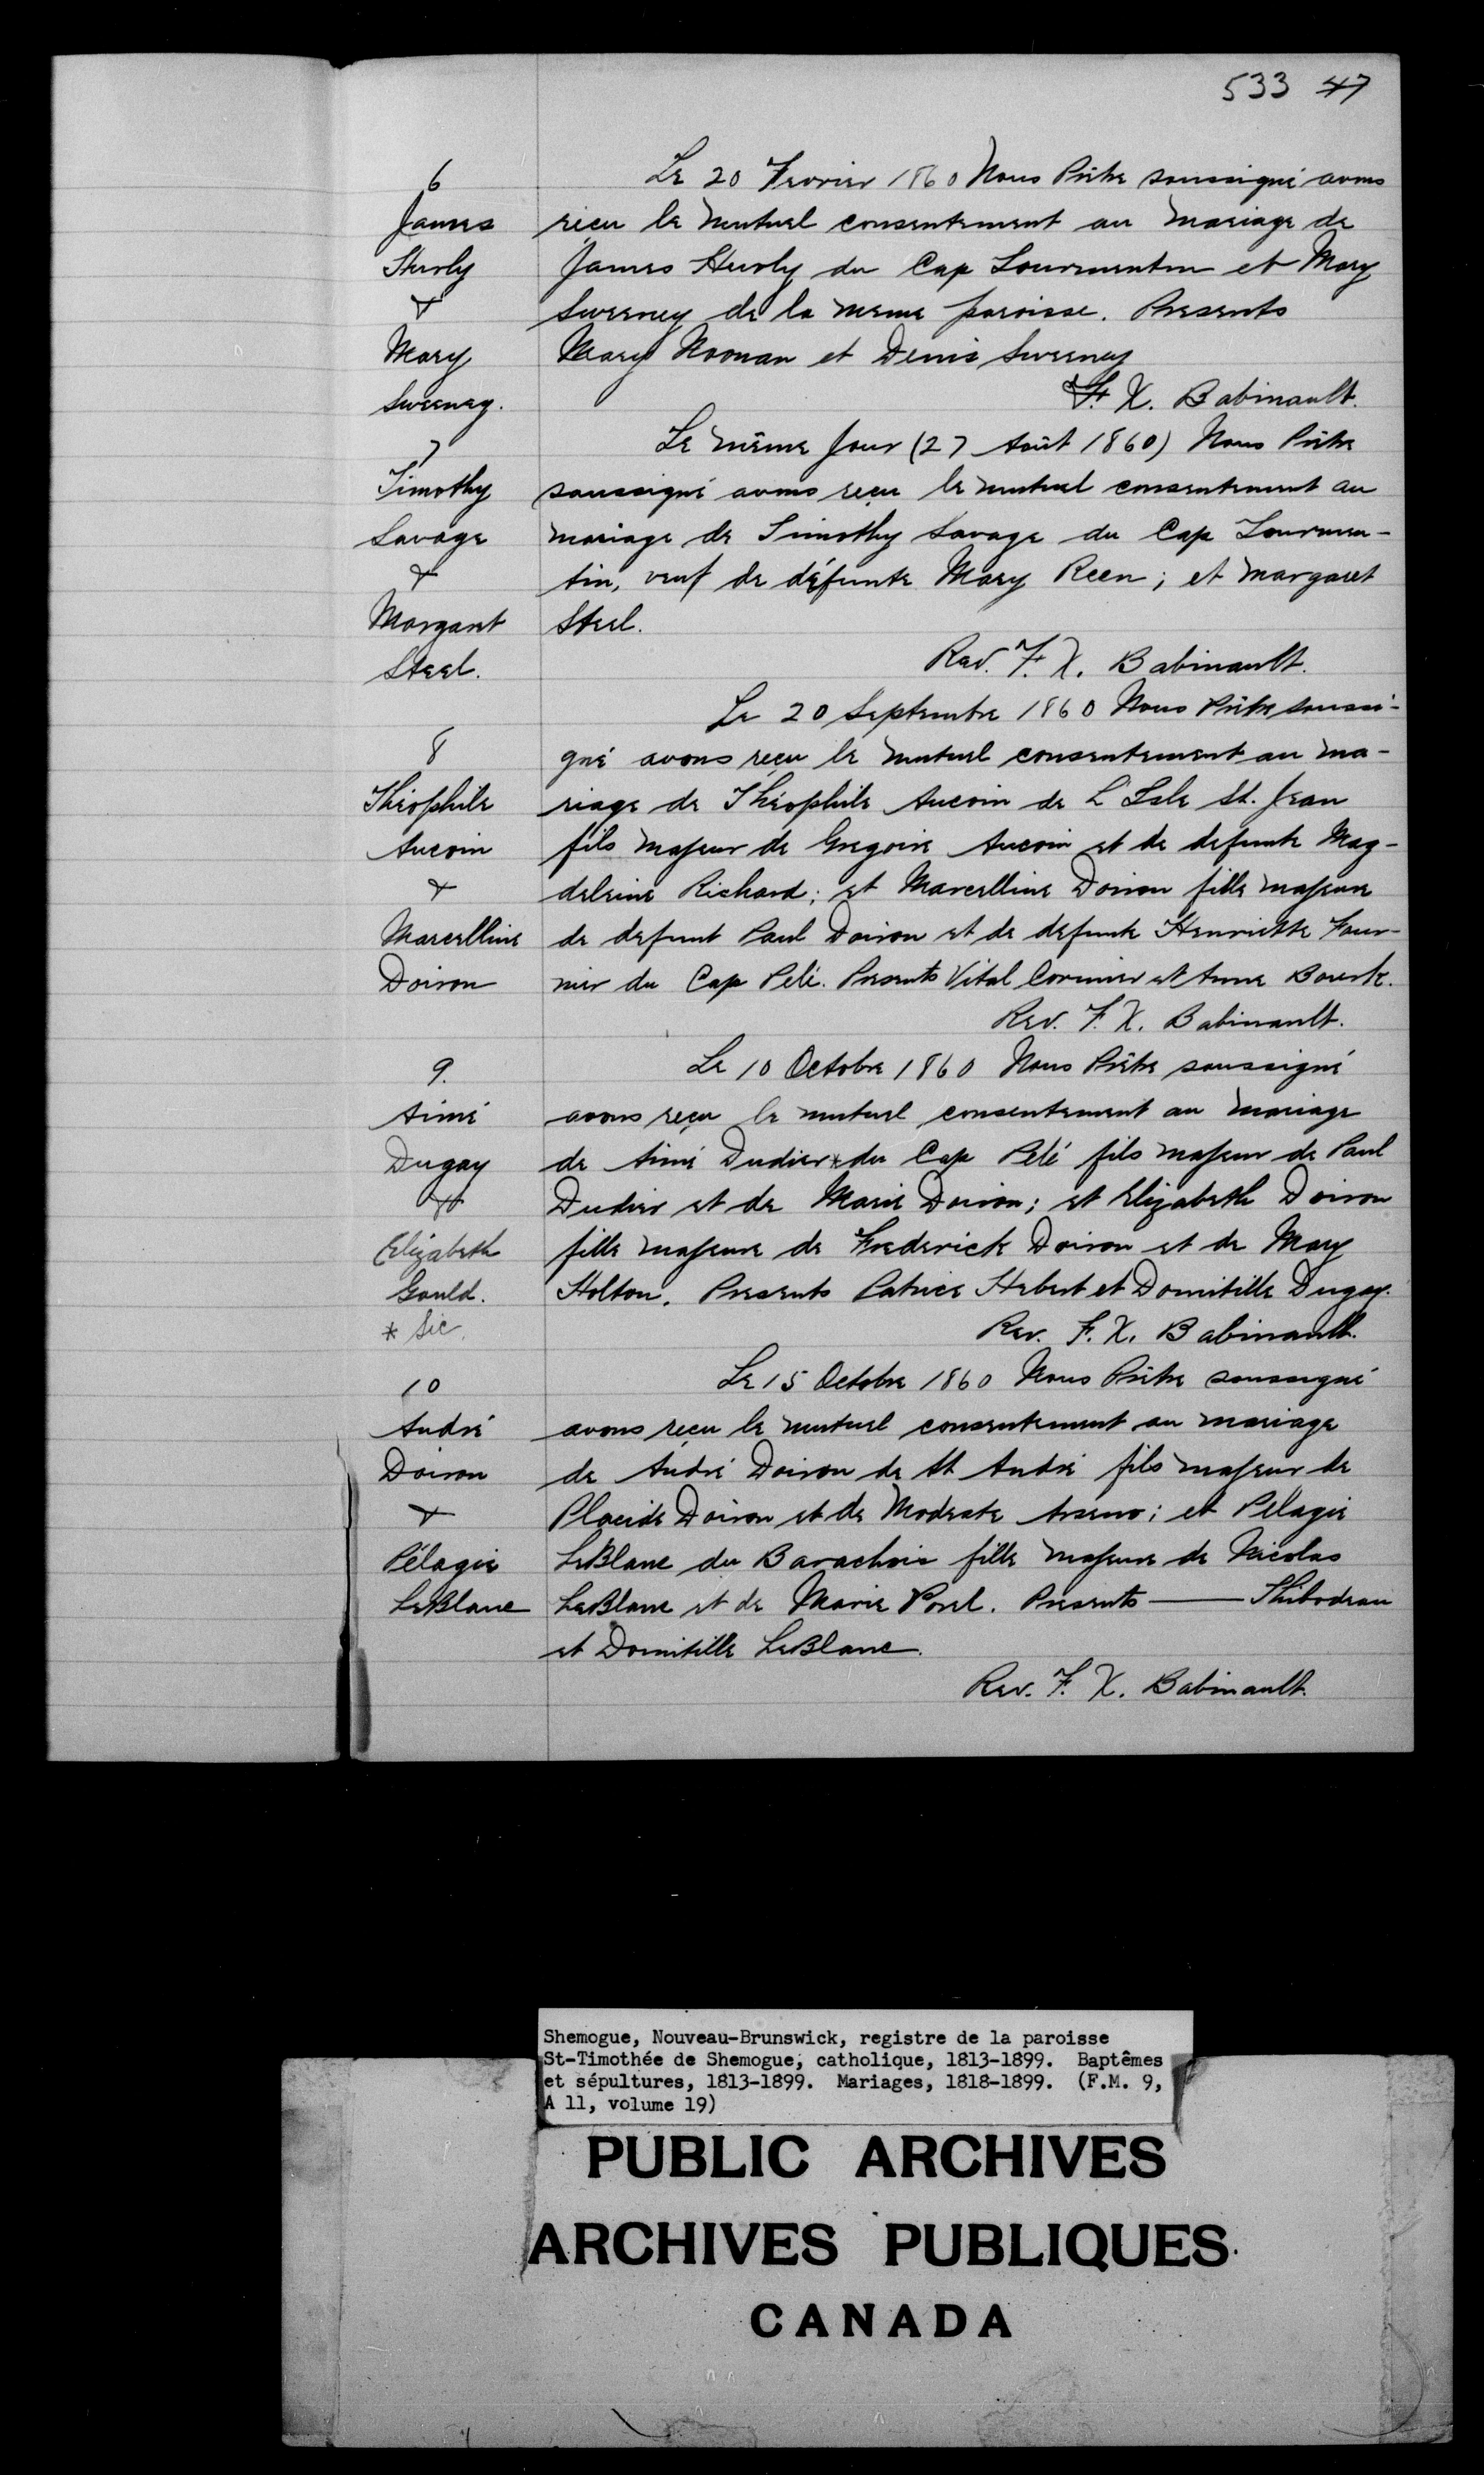 533 47
6
James
Hurly
&
Mary
Sweeney.
Le 20 Fevrier 1860 Nous Prêtre soussigné avons
reçu le mutuel consentement au mariage de
James Hurly du Cap Tourmentin et Mary
Sweeney de la meme paroisse. Presents
Mary Noonan et Denis Sweeney
F. X. Babinault.
7
Timothy
Savage
&
Margaret
Steel.
Le même Jour (27 Août 1860) Nous Prêtre
soussigné avons reçu le mutuel consentement au
mariage de Timothy Savage du Cap Tourmen-
tin, veuf de défunte Mary Reen; et Margaret
Steel.
Rev. F. X. Babinault.
8
Théophile
Aucoin
&
Marcelline
Doiron
Le 20 Septembre 1860 Nous Prêtre soussi-
gné avons reçu le mutuel consentement au ma-
riage de Théophile Aucoin de L'Isle St. Jean
fils majeur de Gregoire Aucoin et de defunte Mag-
deleine Richard; et Marcelline Doiron fille majeure
de defunt Paul Doiron et de defunte Henriette Four-
nier du Cap Pelé. Presents Vital Cormier et Anne Bourk.
Rev. F. X. Babinault.
9.
Aimé
Dugay
&
Elizabeth
Gould.
* Sic.
Le 10 Octobre 1860 Nous Prêtre soussigné
avons reçu le mutuel consentement au mariage
de Aimé Dudier* du Cap Pelé fils majeur de Paul
Dudier et de Marie Doiron; et Elizabeth Doiron
fille majeure de Frederick Doiron et de Mary
Holton. Presents Patrice Hebert et Domitille Dugay.
Rev. F. X. Babinault.
10
André
Doiron
&
Pélagie
LeBlanc
Le 15 Octobre 1860 Nous Prêtre soussigné
avons reçu le mutuel consentement au mariage
de André Doiron de St André fils majeur de
Placide Doiron et de Modeste Arseno; et Pélagie
LeBlanc du Barachois fille majeure de Nicolas
LeBlanc et de Marie Porel. Presents —— Thibodeau
et Domitille LeBlanc.
Rev. F. X. Babinault.
Shemogue, Nouveau-Brunswick, registre de la paroisse
St-Timothée de Shemogue, catholique, 1813-1899. Baptêmes
et sépultures, 1813-1899. Mariages, 1818-1899. (F.M. 9,
A 11, volume 19)
PUBLIC ARCHIVES
ARCHIVES PUBLIQUES
CANADA